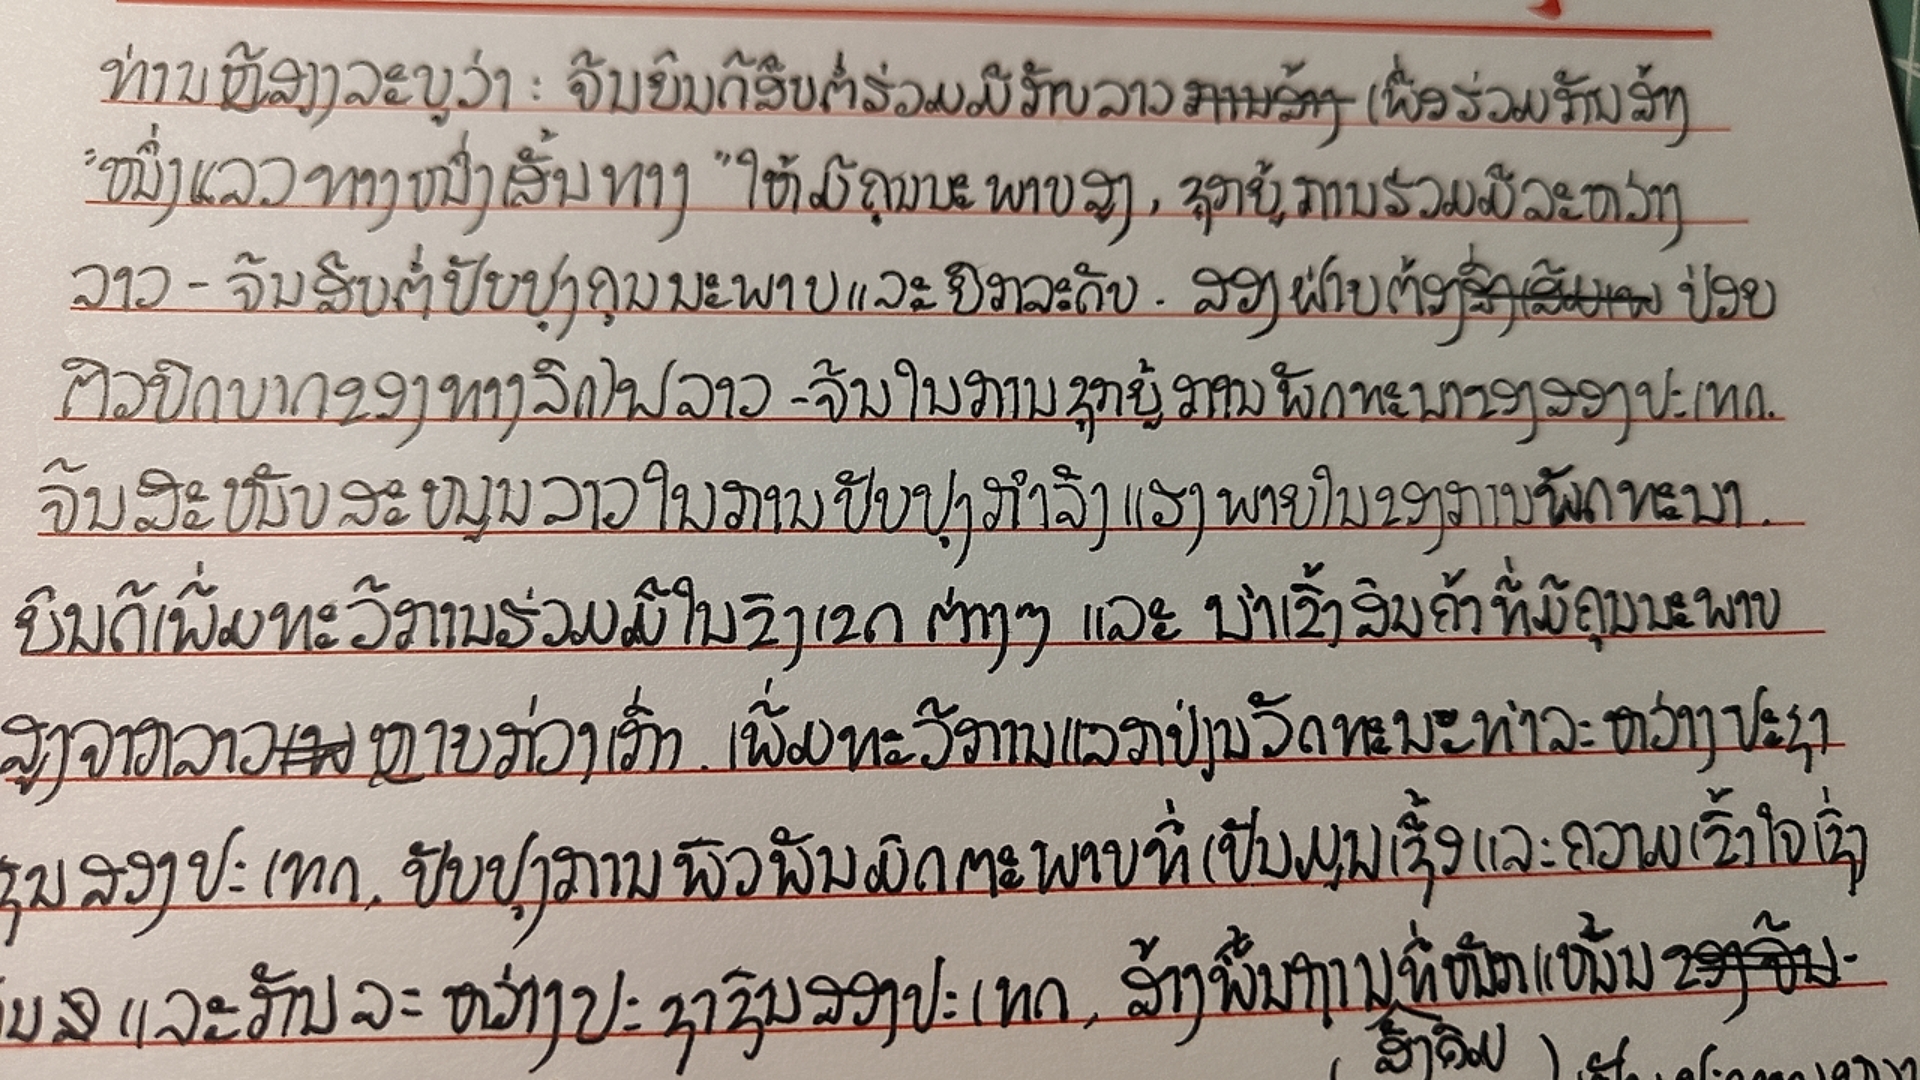 ທ່ານຫຼີສຽງລະບຸວ່າ: ຈີນຍິນດີສືບຕໍ່ຮ່ວມມືກັບລາວ ເພື່ອຮ່ວມກັນສ້າງ
"ໜຶ່ງແລວທາງໜຶ່ງເສັ້ນທາງ" ໃຫ້ມີຄຸນນະພາບສູງ, ຊຸກຍູ້ການຮ່ວມມືລະຫວ່າງ
ລາວ - ຈີນສືບຕໍ່ປັບປຸງຄຸນນະພາບແລະຍົກລະດັບ. ສອງຝ່າຍຕ້ອງ ປ່ອຍ
ຕົວຍົດບາດຂອງທາງລົດໄຟລາວ - ຈີນໃນການຊຸກຍູ້ການພັດທະນາຂອງສອງປະເທດ.
ຈີນສະໜັບສະໜູນລາວໃນການປັບປຸງກຳລັງແຮງພາຍໃນຂອງການພັດທະນາ.
ຍິນດີເພີ່ມທະວີການຮ່ວມມືໃນຂົງເຂດ ຕ່າງໆ ແລະ ນຳເຂົ້າສິນຄ້າທີ່ມີຄຸນນະພາບ
ສູງຈາກລາວ ຫຼາຍກ່ວາເກົ່າ. ເພີ່ມທະວີການແລກປ່ຽນວັດທະນະທຳລະຫວ່າງປະຊາ
ຊົນສອງປະເທດ, ປັບປຸງການພົວພັນມິດຕະພາບທີ່ເປັນມູນເຊື້ອແລະຄວາມເຂົ້າໃຈເຊິ່ງ
ແລະກັນລະຫວ່າງປະຊາຊົນສອງປະເທດ, ສ້າງພື້ນຖານທີ່ໜັກແໜ້ນ
(ສັງຄົມ)